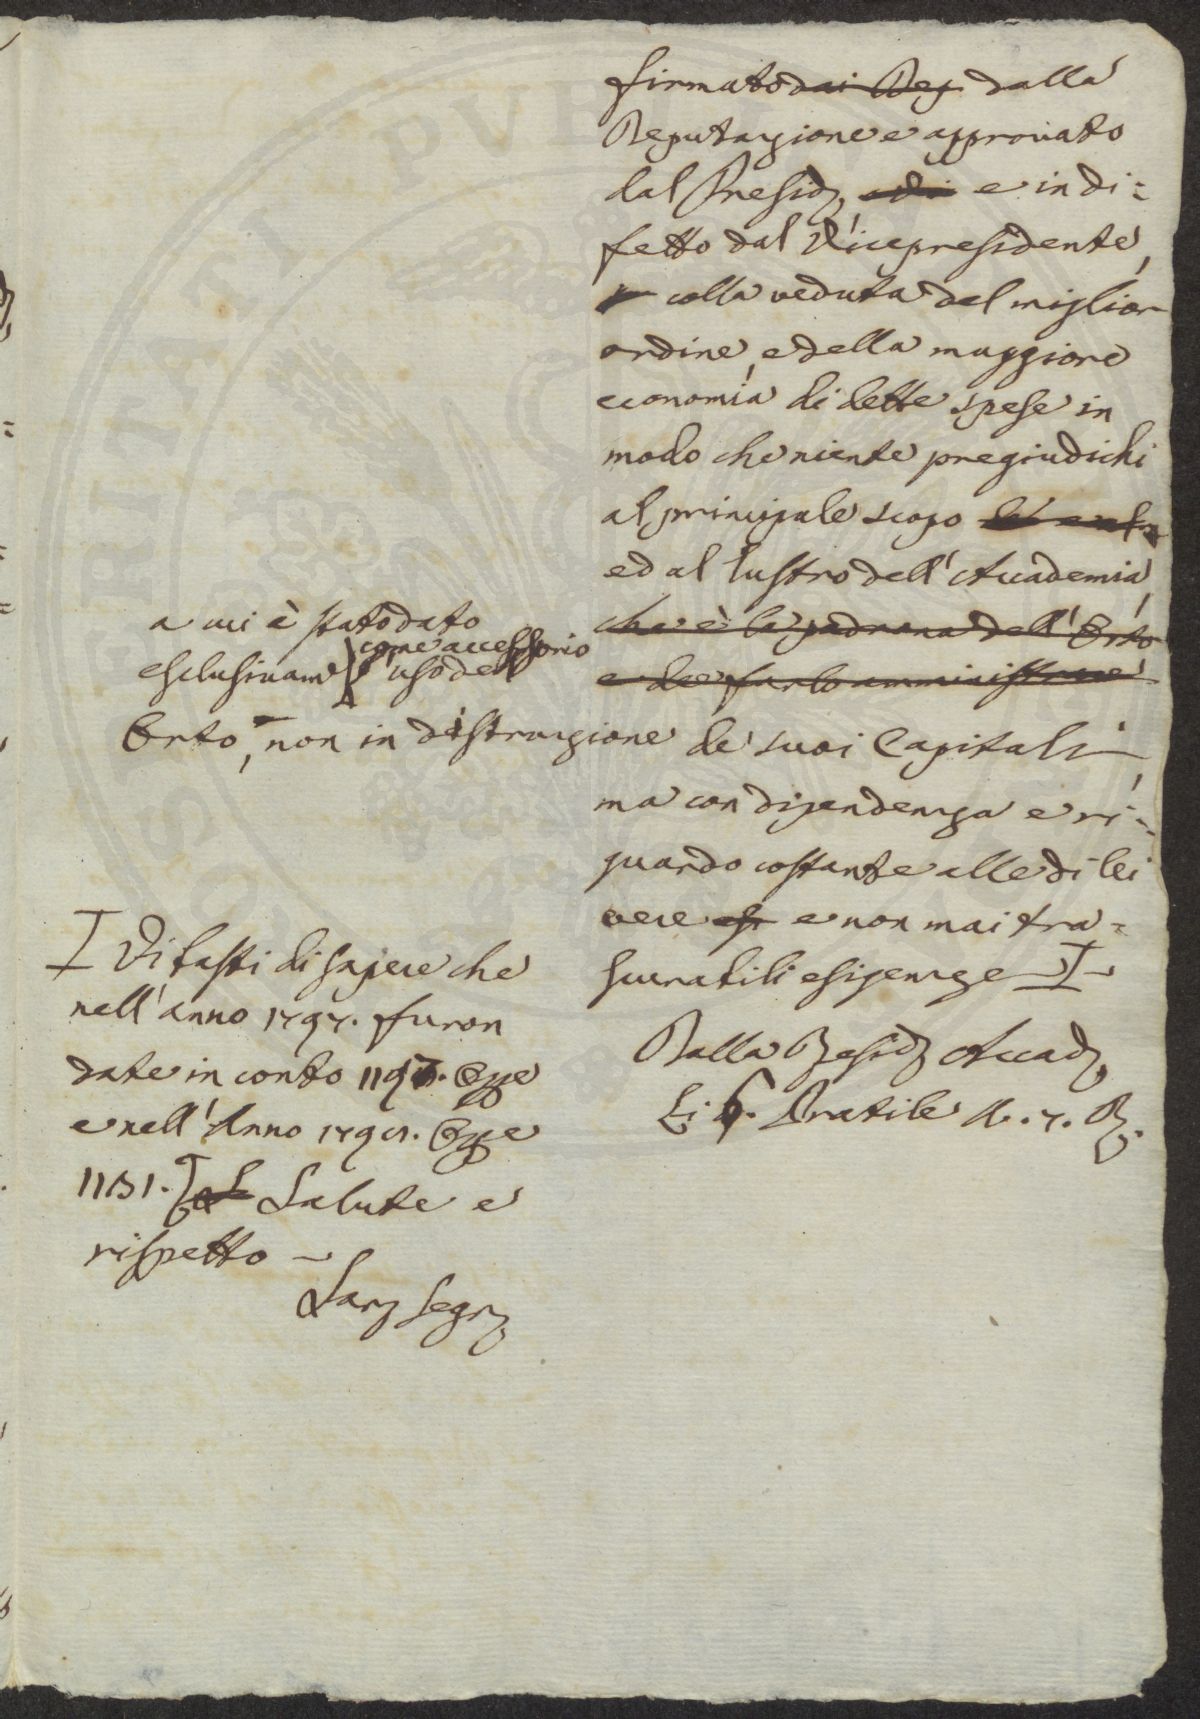 firmato dai Dep. dalla
Deputazione e approvato
dal Presid. e in di=
fetto dal Vicepresidente,
colla veduta del miglior
ordine, e della maggiore
economia di dette spese in
modo che niente pregiudichi
al principale scopo
ed al lustro dell'Accademia,
che è la padrona dell'Orto
e dee farlo amministrare
a cui è stato dato
come accessorio
esclusivam l'uso dell
Orto, non in distruzione de suoi Capitali,
ma con dipendenza e ri=
guardo costante alle di lei
vere e non mai tra=
scuratili esigenze
Dalla Resid Accad
Li 6. Pratile A. 7. R.
Vi basti di sapere che
nell'anno 1797. furon
date in conto Ŏppe
e nell'Anno Oppe
1131. Salute e
rispetto
Segr